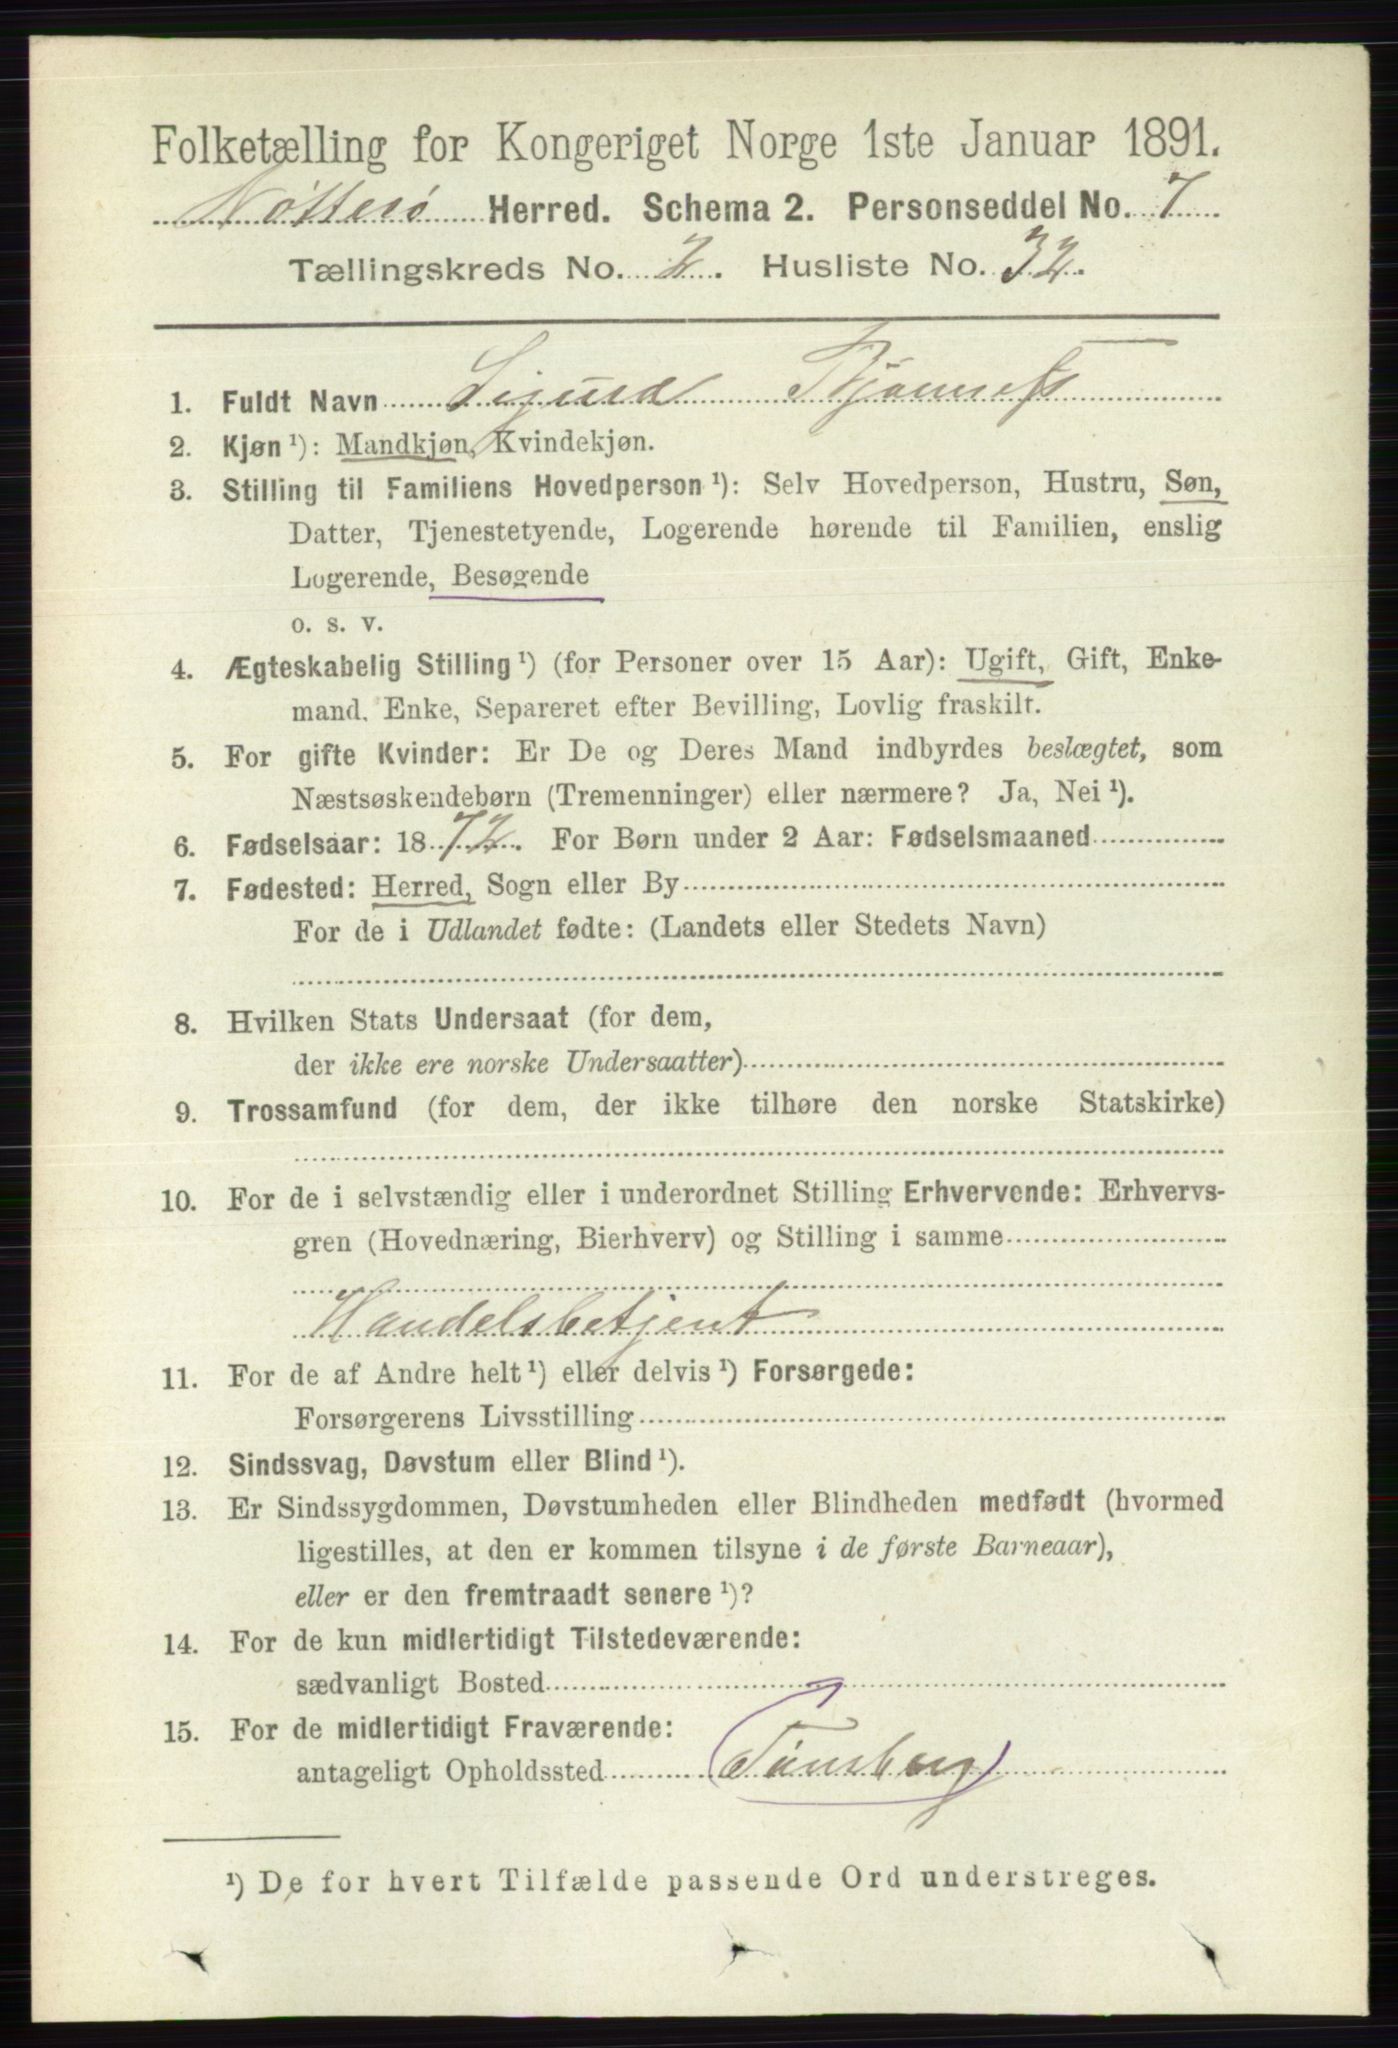 Folketælling for Kongeriget Norge 1ste Januar 1891.
Nötterö Herred. Schema 2. Personseddel No. 7
Tællingskreds No. 2. Husliste No. 32.
1. Fuldt Navn Sigurd
2. Kjøn ¹): Mandkjøn, Kvindekjøn.
3. Stilling til Familiens Hovedperson ¹): Selv Hovedperson, Hustru, Søn,
Datter, Tjenestetyende, Logerende hørende til Familien, enslig
Logerende, Besøgende
o. s. v.
4. Ægteskabelig Stilling ¹) (for Personer over 15 Aar): Ugift, Gift, Enke-
mand, Enke, Separeret efter Bevilling, Lovlig fraskilt.
5. For gifte Kvinder: Er De og Deres Mand indbyrdes beslægtet, som
Næstsøskendebørn (Tremenninger) eller nærmere? Ja, Nei ¹).
6. Fødselsaar: 1872. For Børn under 2 Aar: Fødselsmaaned
7. Fødested: Herred, Sogn eller By
For de i Udlandet fødte: (Landets eller Stedets Navn)
8. Hvilken Stats Undersaat (for dem,
der ikke ere norske Undersaatter)
9. Trossamfund (for dem, der ikke tilhøre den norske Statskirke)
10. For de i selvstændig eller i underordnet Stilling Erhvervende: Erhvervs-
gren (Hovednæring, Bierhverv) og Stilling i samme
Handelsbetjent
11. For de af Andre helt ¹) eller delvis ¹) Forsørgede:
Forsørgerens Livsstilling
12. Sindssvag, Døvstum eller Blind ¹).
13. Er Sindssygdommen, Døvstumheden eller Blindheden medfødt (hvormed
ligestilles, at den er kommen tilsyne i de første Barneaar),
eller er den fremtraadt senere ¹)?
14. For de kun midlertidigt Tilstedeværende:
sædvanligt Bosted
15. For de midlertidigt Fraværende:
antageligt Opholdssted (Tönsberg)
¹) De for hvert Tilfælde passende Ord understreges.